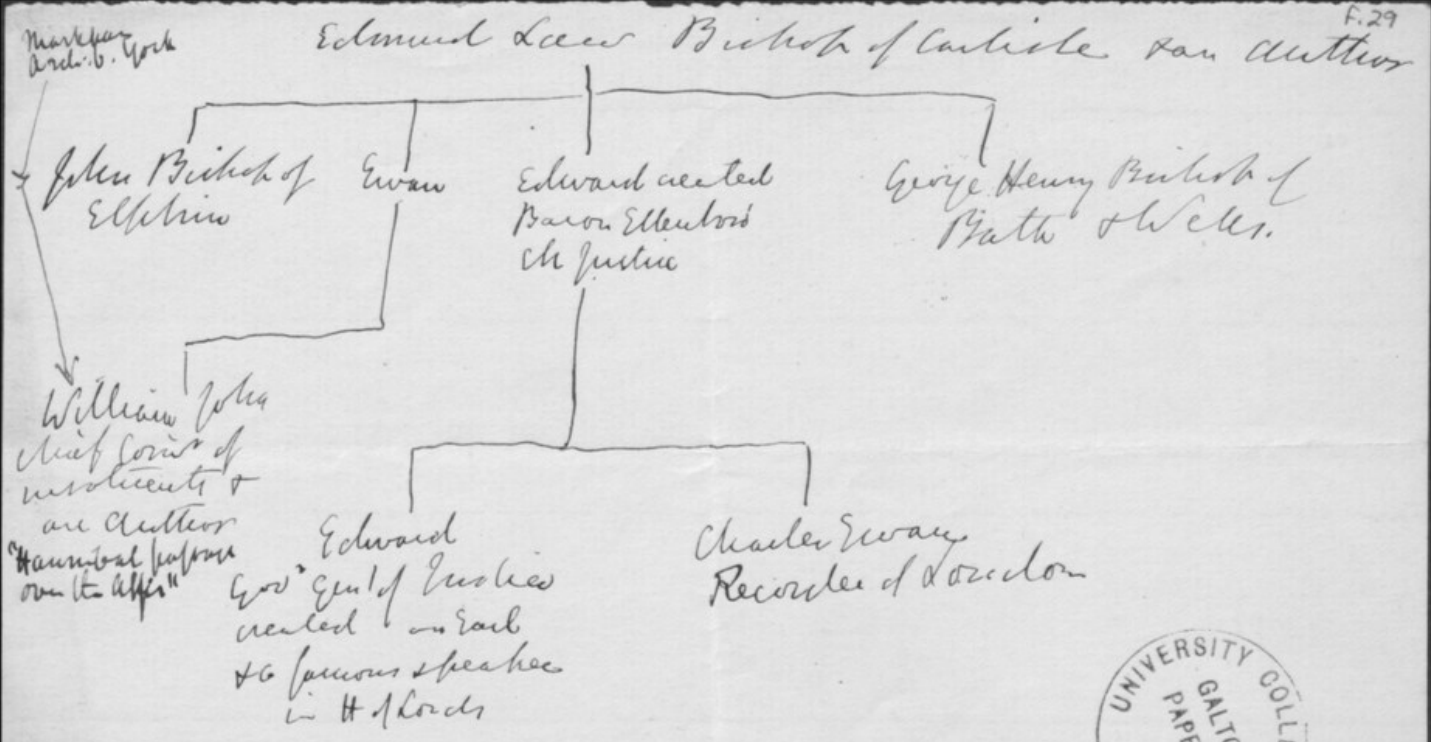 F.29
Markham
Archb. York
Edmund Law Bishop of Carlisle & an Author
John Bishof of
Elphin
Ewan
Edward created
Baron Ellenboro'
Ch Justice
George Henry Bishop of
Bath & Wells.
William John
chief Comr of
insolvents &
an Author
"Hannibal passage
over the Alps"
Edward
Govr Genl of India
created an Earl
& a famous speaker
in H of Lords
Charles Ewan
Recorder of London
UNIVERSITY COLL
GALTO
PAPE